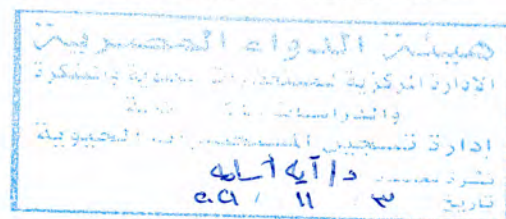 هيئة الدواء المصرية
الإدارة المركزية للمستحضرات الحيوية والمبتكرة
والدراسات
إدارة تسجيل المستحضرات الحيوية
نشرة معتمدة د/ آية أسامه
تاريخ ٣ / ١١ /